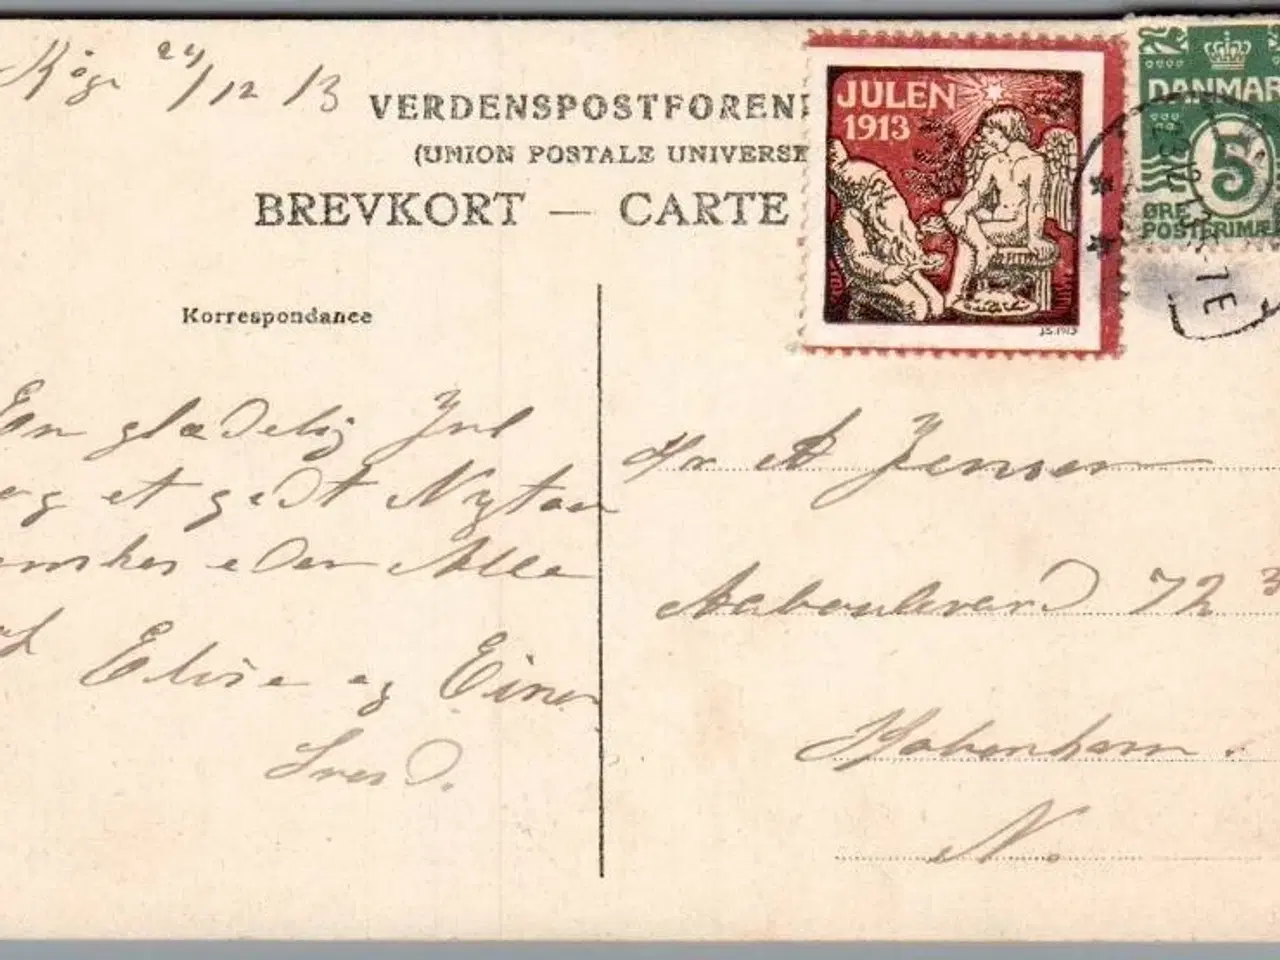 Køge 24/12 13
VERDENSPOSTFORENI
(UNION POSTALE UNIVERSE
BREVKORT — CARTE
JULEN
1913
J.S. 1913
DANMAR
5
ØRE
POSTFRIMÆ
Korrespondance
En glædelig Jul
og et godt Nytaar
ønskes eder Alle
Elise og Einer
Svend.
Hr A Jensen
Aaboulevard 72 3
København.
N.